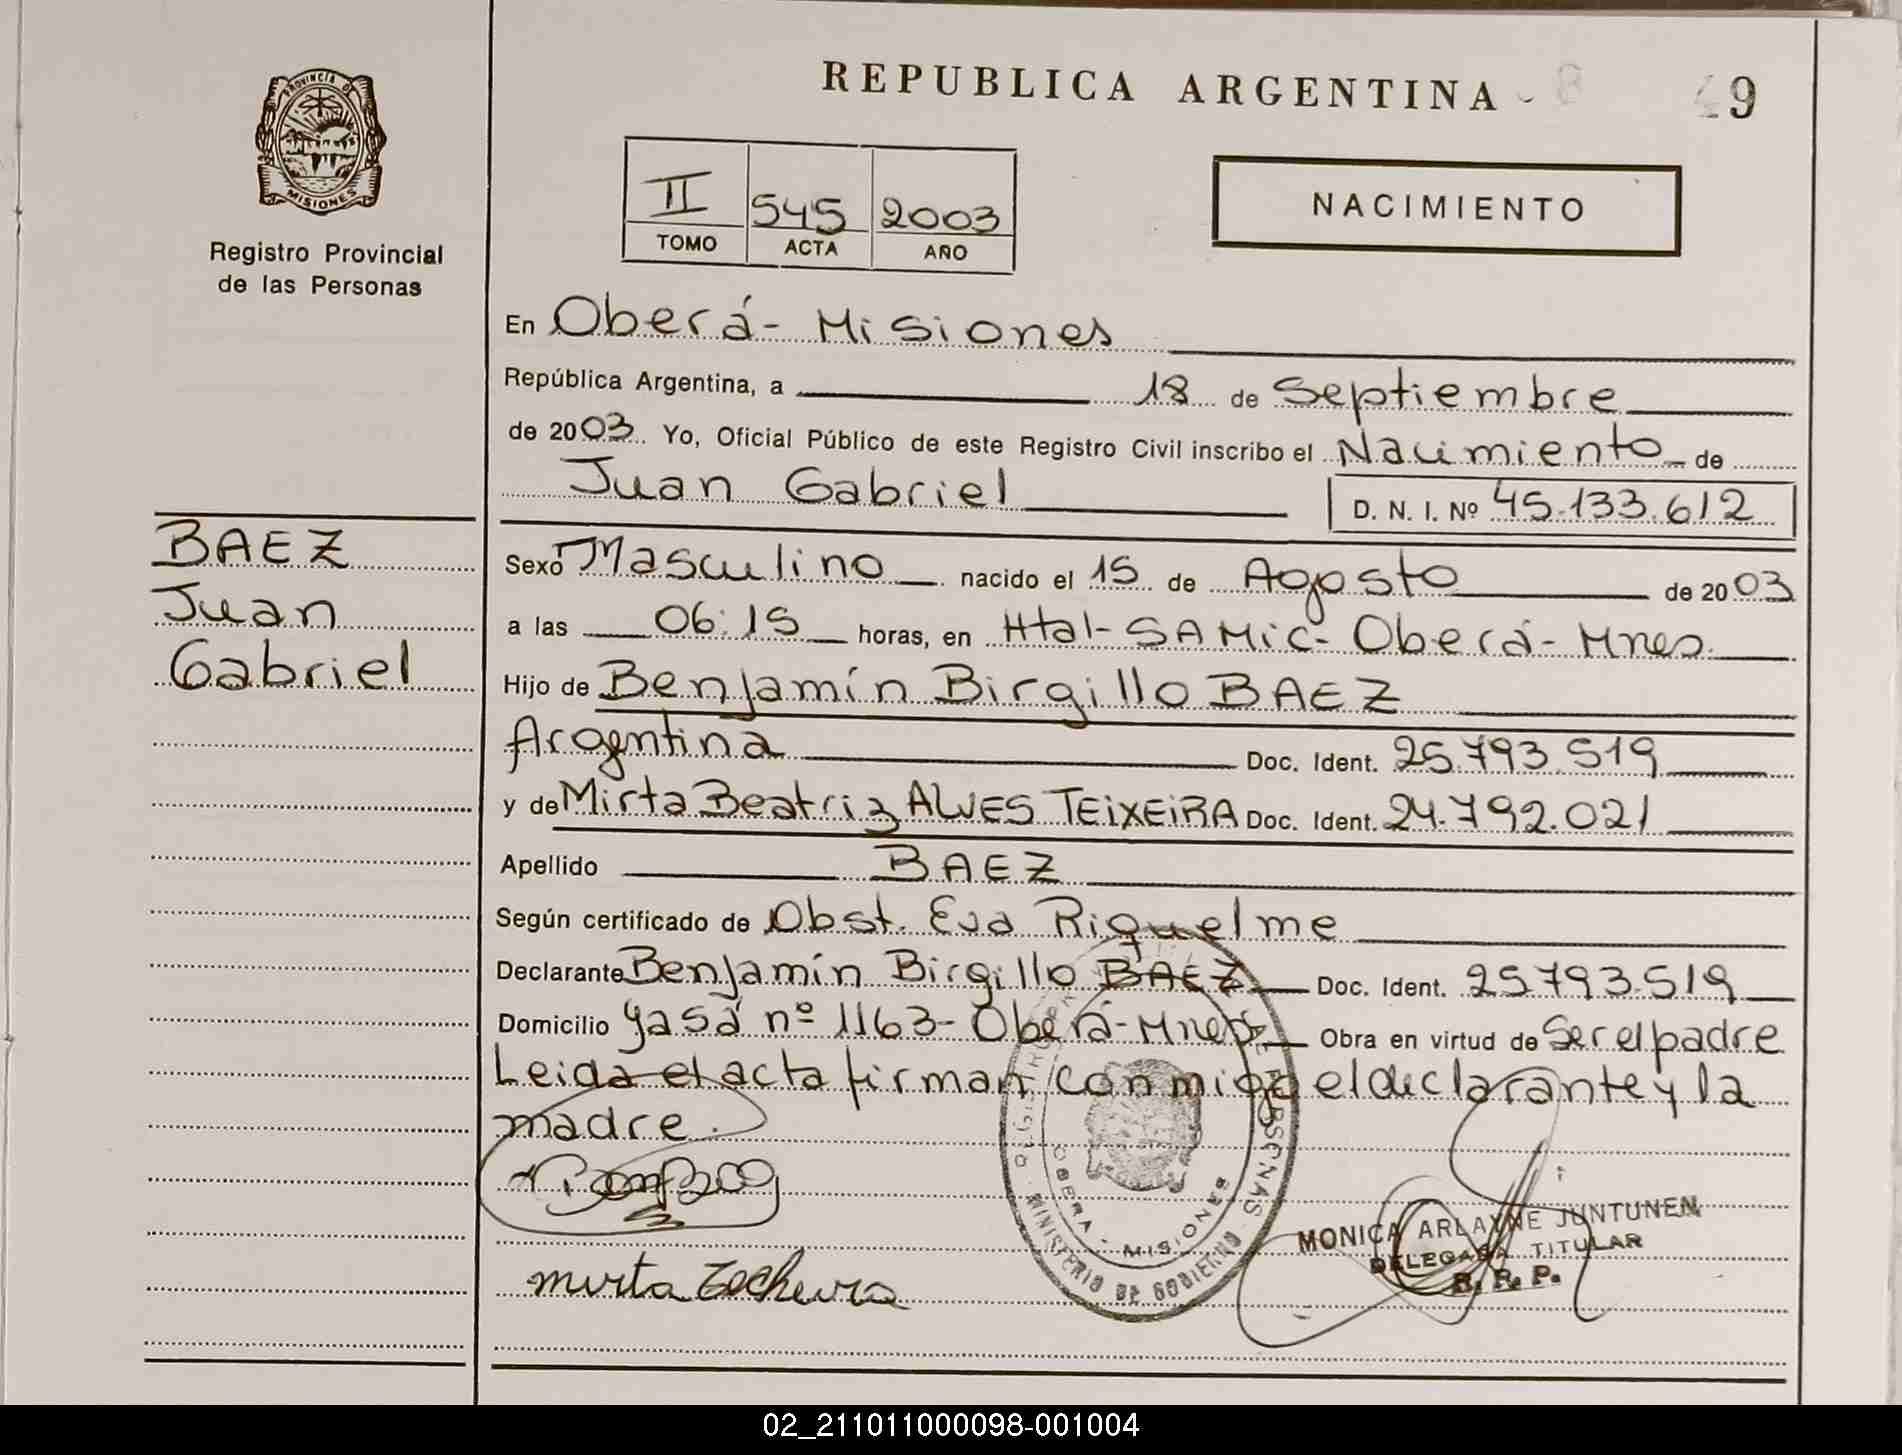 REPUBLICA ARGENTINA
9
PROVINCIA DE
MISIONES
Registro Provincial
de las Personas
II 545 2003
TOMO ACTA AÑO
NACIMIENTO
En Oberá - Misiones
República Argentina, a 18 de Septiembre
de 2003 Yo, Oficial Público de este Registro Civil inscribo el Nacimiento de
Juan Gabriel D. N. I. Nº 45.133.612
BAEZ
Juan
Gabriel
Sexo Masculino nacido el 15 de Agosto de 2003
a las 06:15 horas, en Htal-SAMIC- Oberá- Mnes.
Hijo de Benjamín Birgillo BAEZ
Argentina Doc. Ident. 25.793.519
y de Mirta Beatriz ALVES TEIXEIRA Doc. Ident. 24.792.021
Apellido BAEZ
Según certificado de Obst. Eva Riquelme
Declarante Benjamín Birgillo BAEZ Doc. Ident. 25793.519
Domicilio Yasá nº 1163- Oberá- Mnes Obra en virtud de Ser el padre
Leida el acta firman conmigo el declarante y la
madre.
MINISTERIO DE GOBIERNO
OBERA - MISIONES
MONICA ARLAYNE JUNTUNEN
DELEGADA TITULAR
R. R. P.
02_211011000098-001004